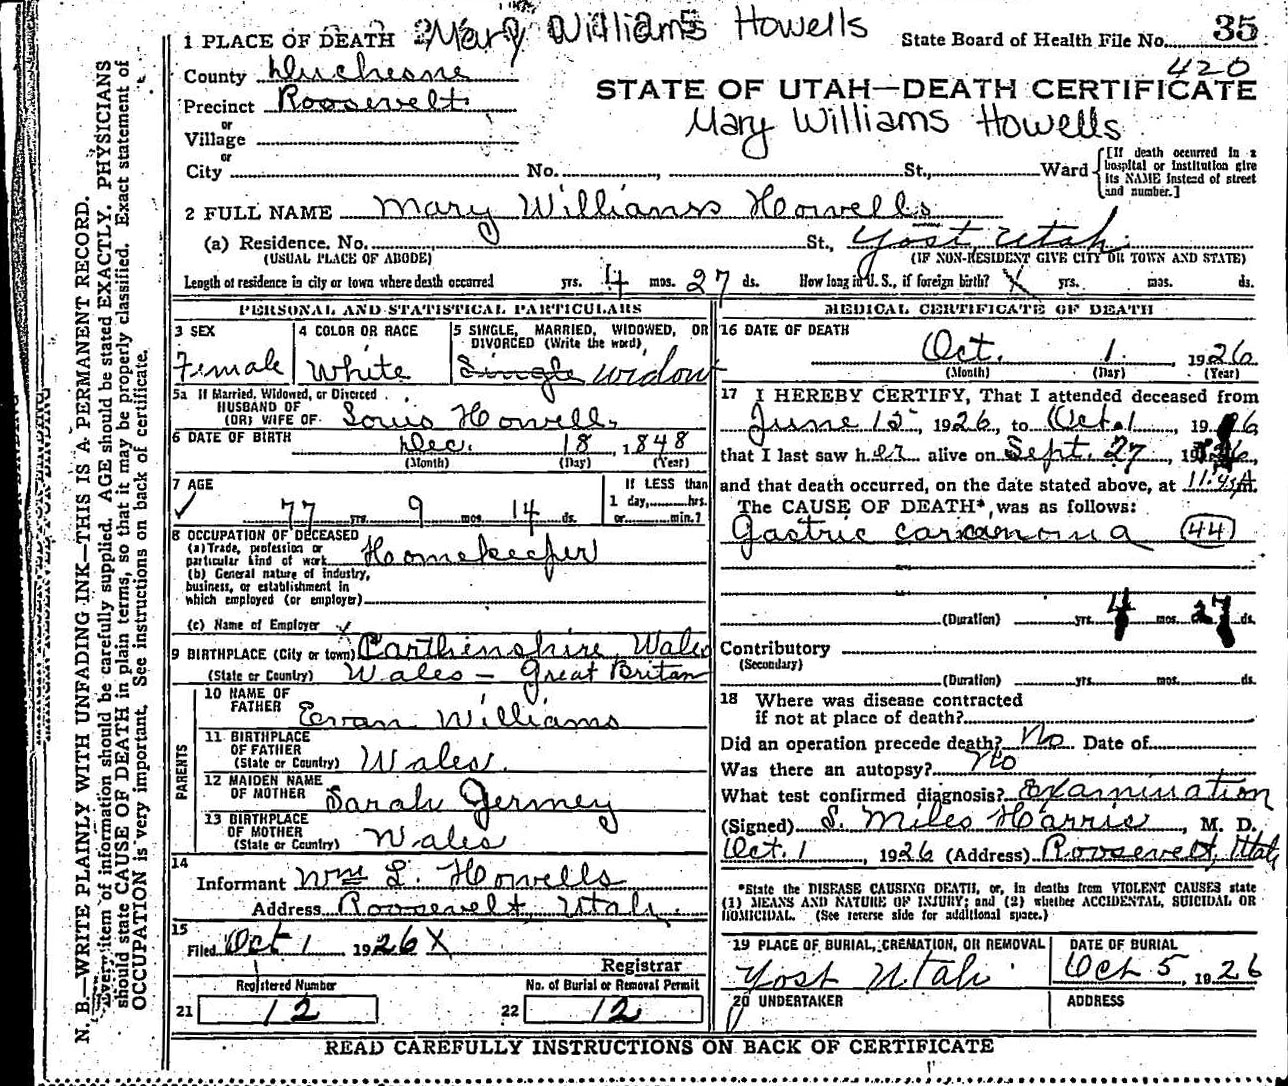 1 PLACE OF DEATH Mary Williams Howells State Board of Health File No. 35
420
County Duchesne
Precinct Roosevelt
or
Village
or
City No. , St., Ward
[If death occurred in a hospital or institution give its NAME instead of street and number.]
STATE OF UTAH—DEATH CERTIFICATE
Mary Williams Howells
2 FULL NAME Mary Williams Howells
(a) Residence. No. St., Yost, Utah.
(USUAL PLACE OF ABODE) (IF NON-RESIDENT GIVE CITY OR TOWN AND STATE)
Length of residence in city or town where death occurred yrs. 4 mos. 27 ds. How long in U. S., if foreign birth? X yrs. mos. ds.
PERSONAL AND STATISTICAL PARTICULARS
3 SEX
Female
4 COLOR OR RACE
White
5 SINGLE, MARRIED, WIDOWED, OR
DIVORCED (Write the word)
Single widow
5a If Married, Widowed, or Divorced
HUSBAND OF
(OR) WIFE OF Louis Howells
6 DATE OF BIRTH Dec. 18, 1848
(Month) (Day) (Year)
7 AGE
77 yrs. 9 mos. 14 ds.
If LESS than
1 day, hrs.
or min.?
8 OCCUPATION OF DECEASED
(a) Trade, profession or
particular kind of work Homekeeper
(b) General nature of industry,
business, or establishment in
which employed (or employer)
(c) Name of Employer
9 BIRTHPLACE (City or town) Carthenshire, Wales
(State or Country) Wales — Great Britan
PARENTS
10 NAME OF
FATHER Evan Williams
11 BIRTHPLACE
OF FATHER
(State or Country) Wales.
12 MAIDEN NAME
OF MOTHER Sarah Jermey
13 BIRTHPLACE
OF MOTHER
(State or Country) Wales
14
Informant Wm L. Howells
Address Roosevelt, Utah.
15
Filed Oct 1 1926 X
Registrar
Registered Number
21 12
No. of Burial or Removal Permit
22 12
MEDICAL CERTIFICATE OF DEATH
16 DATE OF DEATH
Oct. 1 1926
(Month) (Day) (Year)
17 I HEREBY CERTIFY, That I attended deceased from
June 12, 1926, to Oct. 1, 1926
that I last saw her alive on Sept. 27, 1926,
and that death occurred, on the date stated above, at 11:45 A.m.
The CAUSE OF DEATH*, was as follows:
Gastric carcamona (44)
(Duration) yrs. 4 mos. 27 ds.
Contributory
(Secondary)
(Duration) yrs. mos. ds.
18 Where was disease contracted
if not at place of death?
Did an operation precede death? No Date of
Was there an autopsy? No
What test confirmed diagnosis? Examination
(Signed) S. Miles Harris, M. D.
Oct. 1, 1926 (Address) Roosevelt, Utah
*State the DISEASE CAUSING DEATH, or, in deaths from VIOLENT CAUSES state
(1) MEANS AND NATURE OF INJURY; and (2) whether ACCIDENTAL, SUICIDAL OR
HOMICIDAL. (See reverse side for additional space.)
19 PLACE OF BURIAL, CREMATION, OR REMOVAL
Yost Utah
DATE OF BURIAL
Oct 5, 1926
20 UNDERTAKER ADDRESS
READ CAREFULLY INSTRUCTIONS ON BACK OF CERTIFICATE
N. B.—WRITE PLAINLY WITH UNFADING INK—THIS IS A PERMANENT RECORD.
Every item of information should be carefully supplied. AGE should be stated EXACTLY. PHYSICIANS
should state CAUSE OF DEATH in plain terms, so that it may be properly classified. Exact statement of
OCCUPATION is very important. See instructions on back of certificate.